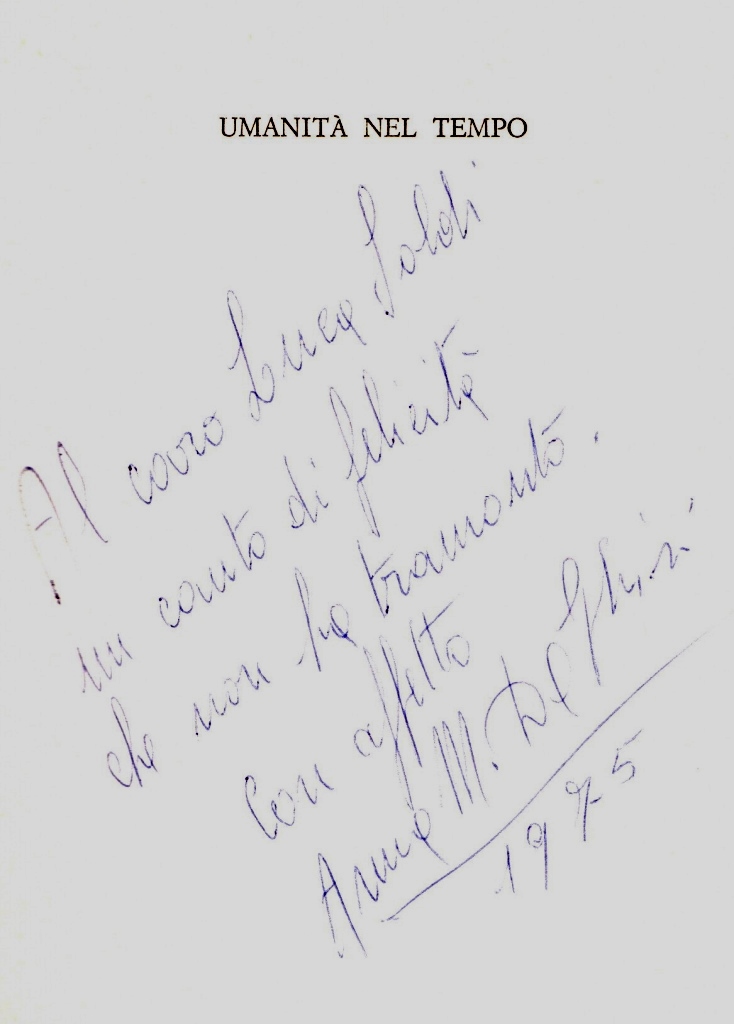 UMANITÀ NEL TEMPO
Al caro Luca Soldi
un canto di felicità
che non ha tramonto.
Con affetto
Anna M. De Ghisi
1975